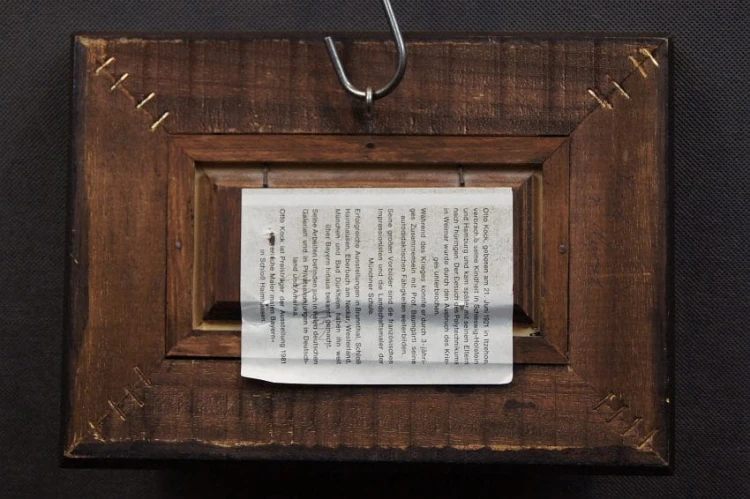 Otto Klock, geboren am 21. Juni 1921 in Itzehoe,
verbrachte seine Kindheit in Schleswig-Holstein
und Hamburg und kam später mit seinen Eltern
nach Thüringen. Der Besuch des Polytechnikums
in Weimar wurde durch den Ausbruch des Krie-
ges unterbrochen.
Während des Krieges konnte er durch 3-jähri-
ges Zusammensein mit Prof. Baumgartl seine
autodidaktischen Fähigkeiten weiterbilden.
Seine großen Vorbilder sind die französischen
Impressionisten und die Landschaftsmaler der
Münchner Schule.
Erfolgreiche Ausstellungen in Schloß
Haimhausen, Eberbach am Neckar, Westerland,
München und Bad Dürkheim haben ihn weit
über Bayern hinaus bekannt gemacht.
Seine Arbeiten befinden sich in vielen deutschen
Galerien und in Privatsammlungen in Deutsch-
land und Amerika.
Otto Klock ist Preisträger der Ausstellung 1981
Maler malen Bayern«
in Schloß Haimhausen.